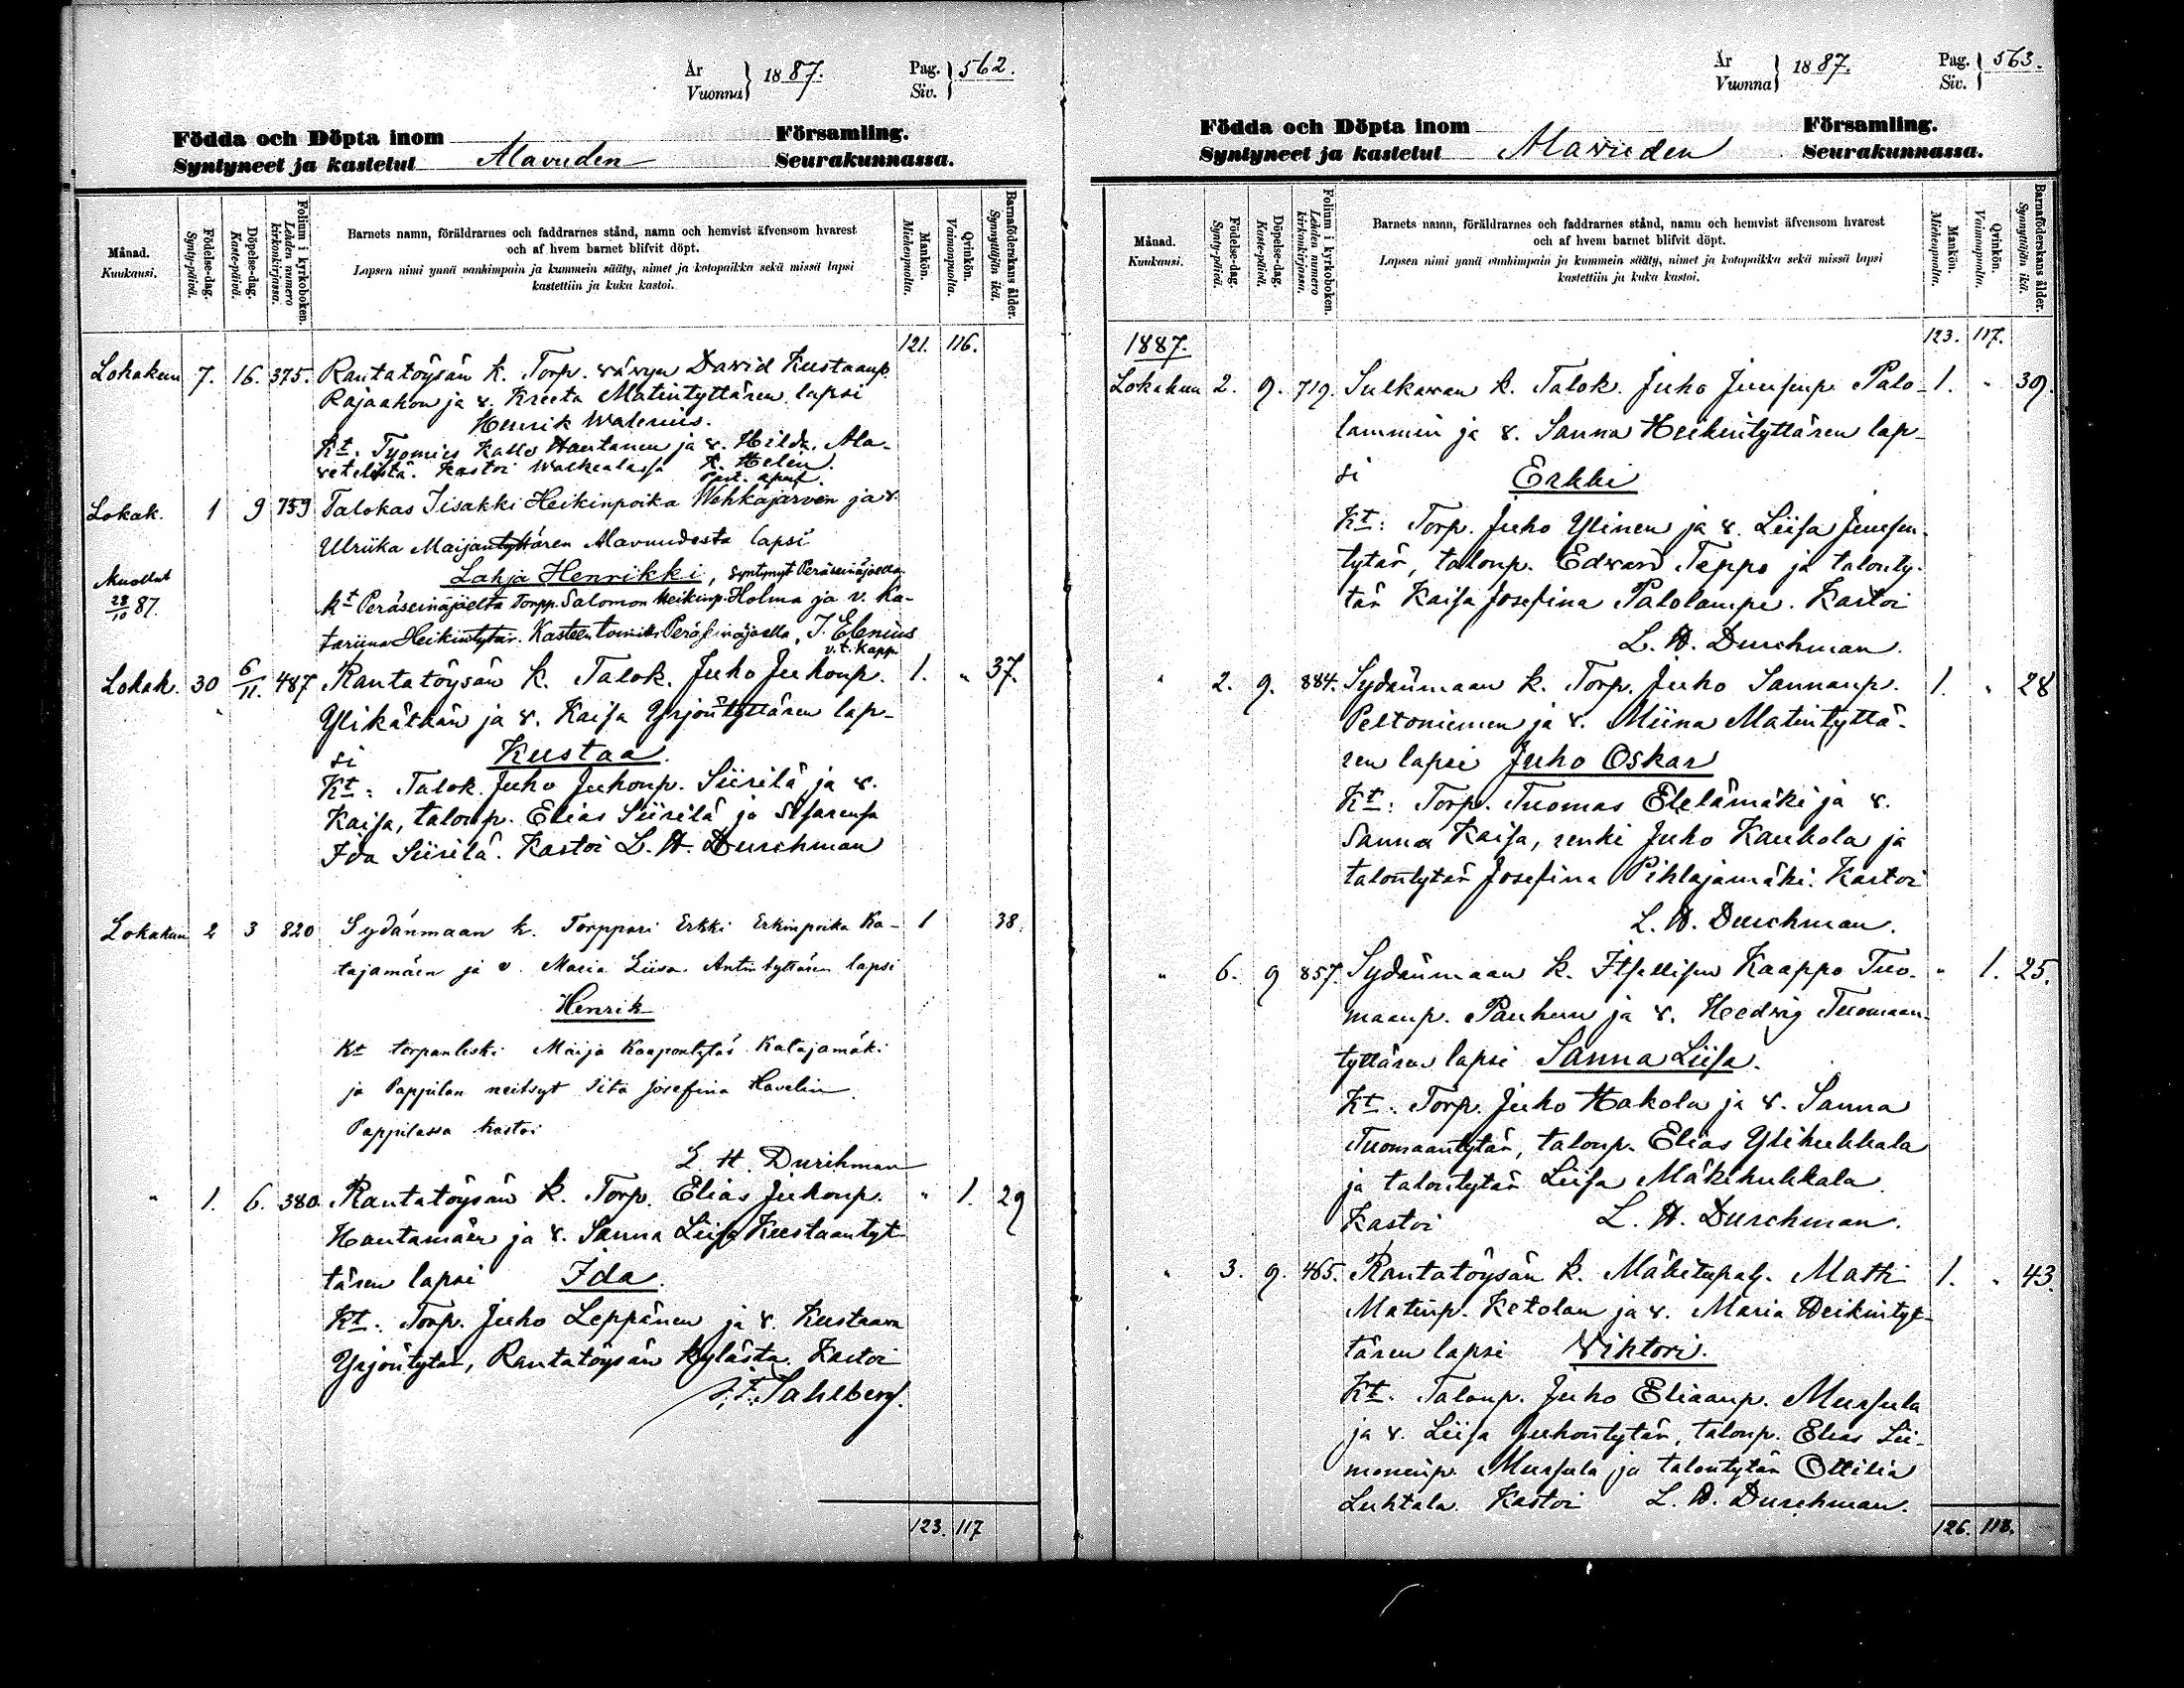 År
Vuonna } 1887.
Pag.
Siv. } 562.
Födda och Döpta inom Församling.
Syntyneet ja kastetut Alavuden Seurakunnassa.
Månad.
Kuukausi.
Födelse-dag.
Synty-päivä.
Döpelse-dag.
Kaste-päivä.
Folium i kyrkoboken.
Lehden numero
kirkonkirjassa.
Barnets namn, föräldrarnes och faddrarnes stånd, namn och hemvist äfvensom hvarest
och af hvem barnet blifvit döpt.
Lapsen nimi ynnä vanhimpain ja kummein sääty, nimet ja kotopaikka sekä missä lapsi
kastettiin ja kuka kastoi.
Mankön.
Miehenpuolta.
Qvinkön.
Vaimonpuolta.
Barnaföderskans ålder.
Synnyttäjän ikä.
121. 116.
Lokakuu 7. 16. 375. Rantatöysän k. Torp. vävyn David Kustaanp.
Rajaahon ja v. Kreeta Matintyttären lapsi
Henrik Walerius.
Kt. Työmies Kalle Hautanen ja v. Hilda Ala-
vetelistä. Kastoi Walkealassa K. Helén.
Past. apul.
Lokak. 1 9 759 Talokas Iisakki Heikinpoika Wehkajärven ja v.
Ulriika Maijantyttären Alavuudesta lapsi
Kuollut
28/10 87.
Lahja Henrikki, syntynyt Peräseinäjoella
kt Peräseinäjoelta torpp. Salomon Heikinp. Holma ja v. Ka-
tariina Heikintytär. Kasteen toimitti Peräseinäjoella, J. Elenius
v.t. Kapp
Lokak. 30 6/11. 487 Rantatöysän k. Talok. Juho Juhonp. 1. " 37.
Ylikätkän ja v. Kaisa Yrjöntyttären lap-
si Kustaa.
Kt: Talok. Juho Juhonp. Siirilä ja v.
Kaisa, talonp. Elias Siirilä ja sisarensa
Ida Siirilä. Kastoi L. H. Durchman
Lokakuu 2 3 820 Sydänmaan k. Torppari Erkki Erkinpoika Ka- 1 38.
tajamäen ja v. Maria Liisa Antintyttären lapsi
Henrik
Kt torpanleski Maija Kaapontytär Katajamäki
ja Pappilan neitsyt Iita Josefina Havelin.
Pappilassa kastoi
L. H. Durchman
" 1. 6. 380. Rantatöysän k. Torp. Elias Juhonp. " 1. 29
Hautamäen ja v. Sanna Liisa Kustaantyt-
tären lapsi Ida.
Kt. Torp. Juho Leppänen ja v. Kustaava
Yrjöntytär, Rantatöysän kylästä. Kastoi
Sahlberg.
123. 117
År
Vuonna } 1887.
Pag.
Siv. } 563.
Födda och Döpta inom Församling.
Syntyneet ja kastetut Alavuden Seurakunnassa.
Månad.
Kuukausi.
Födelse-dag.
Synty-päivä.
Döpelse-dag.
Kaste-päivä.
Folium i kyrkoboken.
Lehden numero
kirkonkirjassa.
Barnets namn, föräldrarnes och faddrarnes stånd, namn och hemvist äfvensom hvarest
och af hvem barnet blifvit döpt.
Lapsen nimi ynnä vanhimpain ja kummein sääty, nimet ja kotopaikka sekä missä lapsi
kastettiin ja kuka kastoi.
Mankön.
Miehenpuolta.
Qvinkön.
Vaimonpuolta.
Barnaföderskans ålder.
Synnyttäjän ikä.
1887. 123. 117.
Lokakuu 2. 9. 719. Sulkavan k. Talok. Juho Juusenp. Palo- 1. " 39.
lammin ja v. Sanna Heikintyttären lap-
si Erkki
Kt: Torp. Juho Ylinen ja v. Liisa Juusen-
tytär, talonp. Edvard Teppo ja talonty-
tär Kaisa Josefina Palolampi. Kastoi
L. H. Durchman.
" 2. 9. 884. Sydänmaan k. Torp. Juho Sannanp. 1. " 28
Peltoniemen ja v. Miina Matintyttä-
ren lapsi Juho Oskar
Kt: Torp. Tuomas Etelämäki ja v.
Sanna Kaisa, renki Juho Kaukola ja
talontytär Josefina Pihlajamäki. Kastoi
L. H. Durchman.
" 6. 9 857. Sydänmaan k. Itsellisen Kaappo Tuo- " 1. 25.
maanp. Pauhun ja v. Hedvig Tuomaan-
tyttären lapsi Sanna Liisa.
Kt. Torp. Juho Hakola ja v. Sanna
Tuomaantytär, talonp. Elias Ylihukkala
ja talontytär Liisa Mäkihukkala.
Kastoi L. H. Durchman.
" 3. 9. 465. Rantatöysän k. Mäkitupal. Matti 1. " 43.
Matinp. Ketolan ja v. Maria Heikintyt-
tären lapsi Vihtori.
Kt. Talonp. Juho Eliaanp. Mursula
ja v. Liisa Juhontytär, talonp. Elias Sii-
monenp. Mursula ja talontytär Ottilia
Luhtala. Kastoi L. H. Durchman.
126. 118.